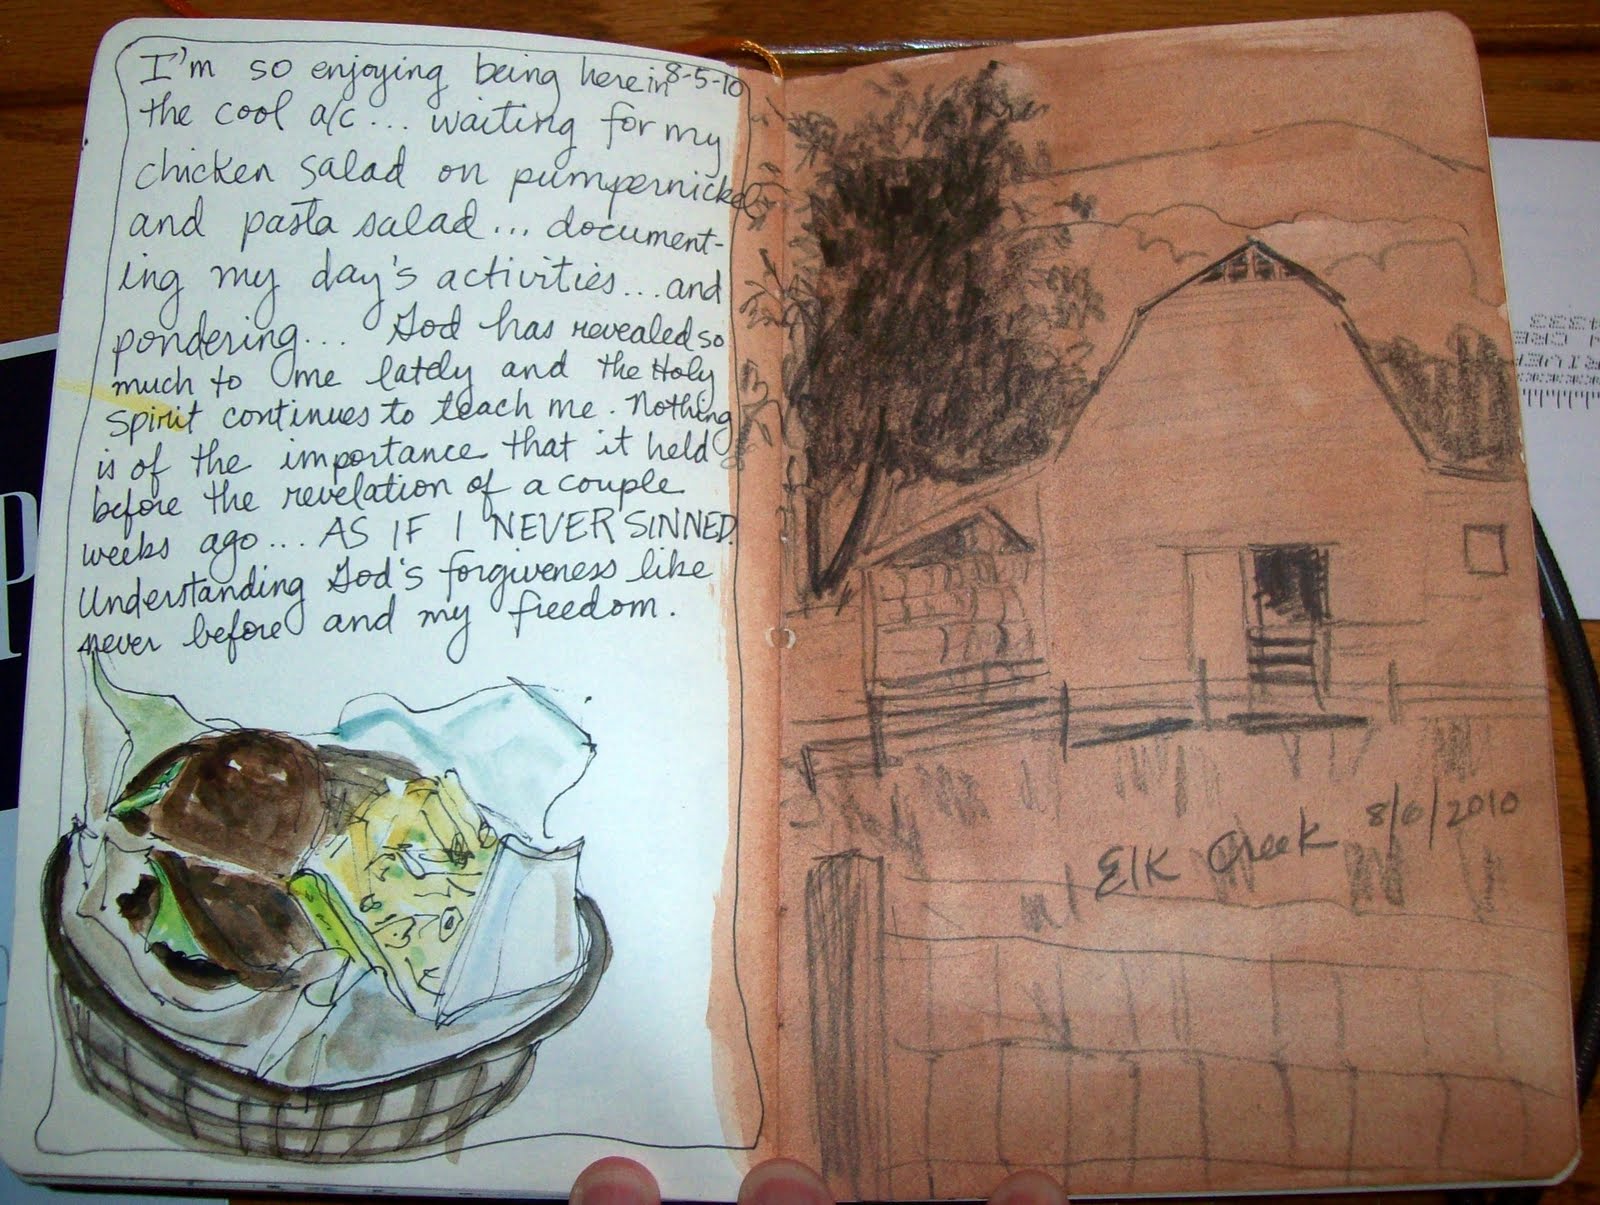 I'm so enjoying being here in 8-5-10
the cool a/c... waiting for my
chicken salad on pumpernickel
and pasta salad... document-
ing my day's activities... and
pondering... God has revealed so
much to me lately and the Holy
Spirit continues to teach me. Nothing
is of the importance that it held
before the revelation of a couple
weeks ago... AS IF I NEVER SINNED.
Understanding God's forgiveness like
never before and my freedom.
Elk Creek 8/6/2010
P
RIVER
CRE
4333